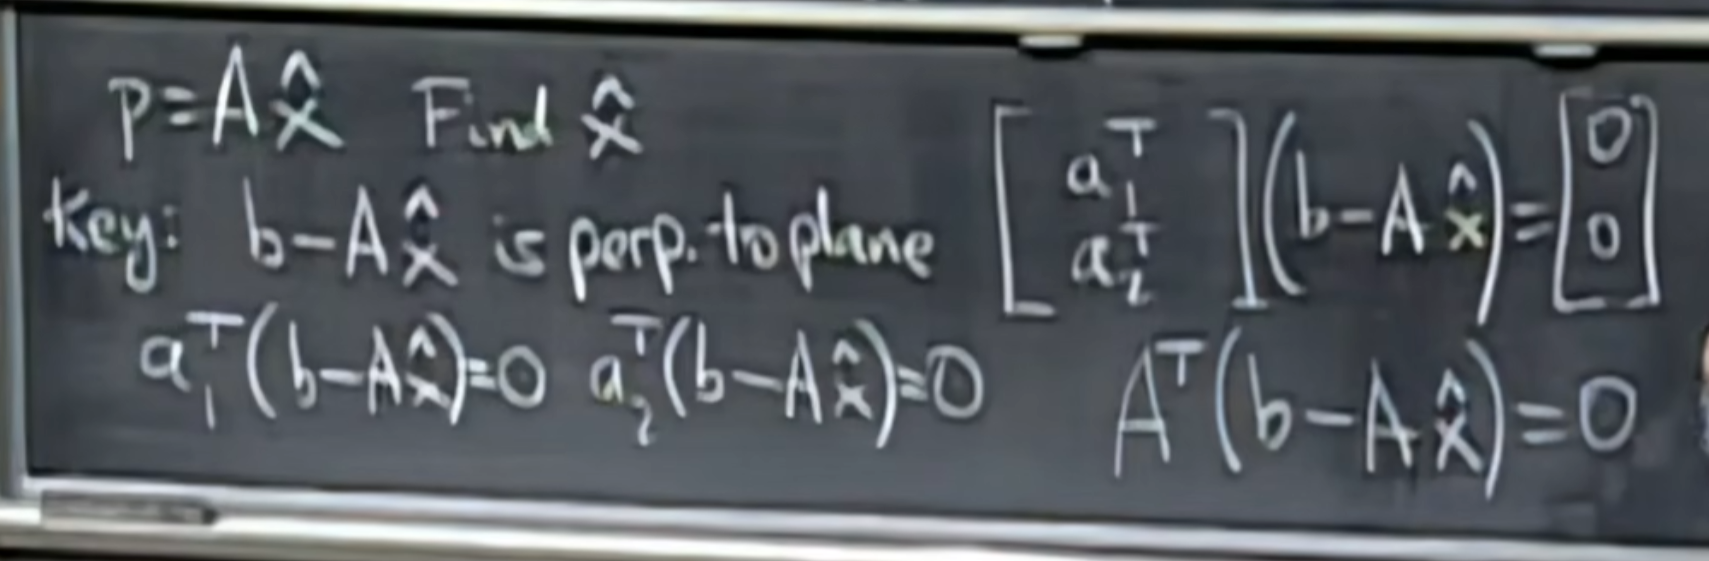 p = Ax̂ Find x̂
Key: b − Ax̂ is perp. to plane
a₁ᵀ(b − Ax̂) = 0 a₂ᵀ(b − Ax̂) = 0
[a₁ᵀ
a₂ᵀ] (b − Ax̂) = [0
0]
Aᵀ(b − Ax̂) = 0